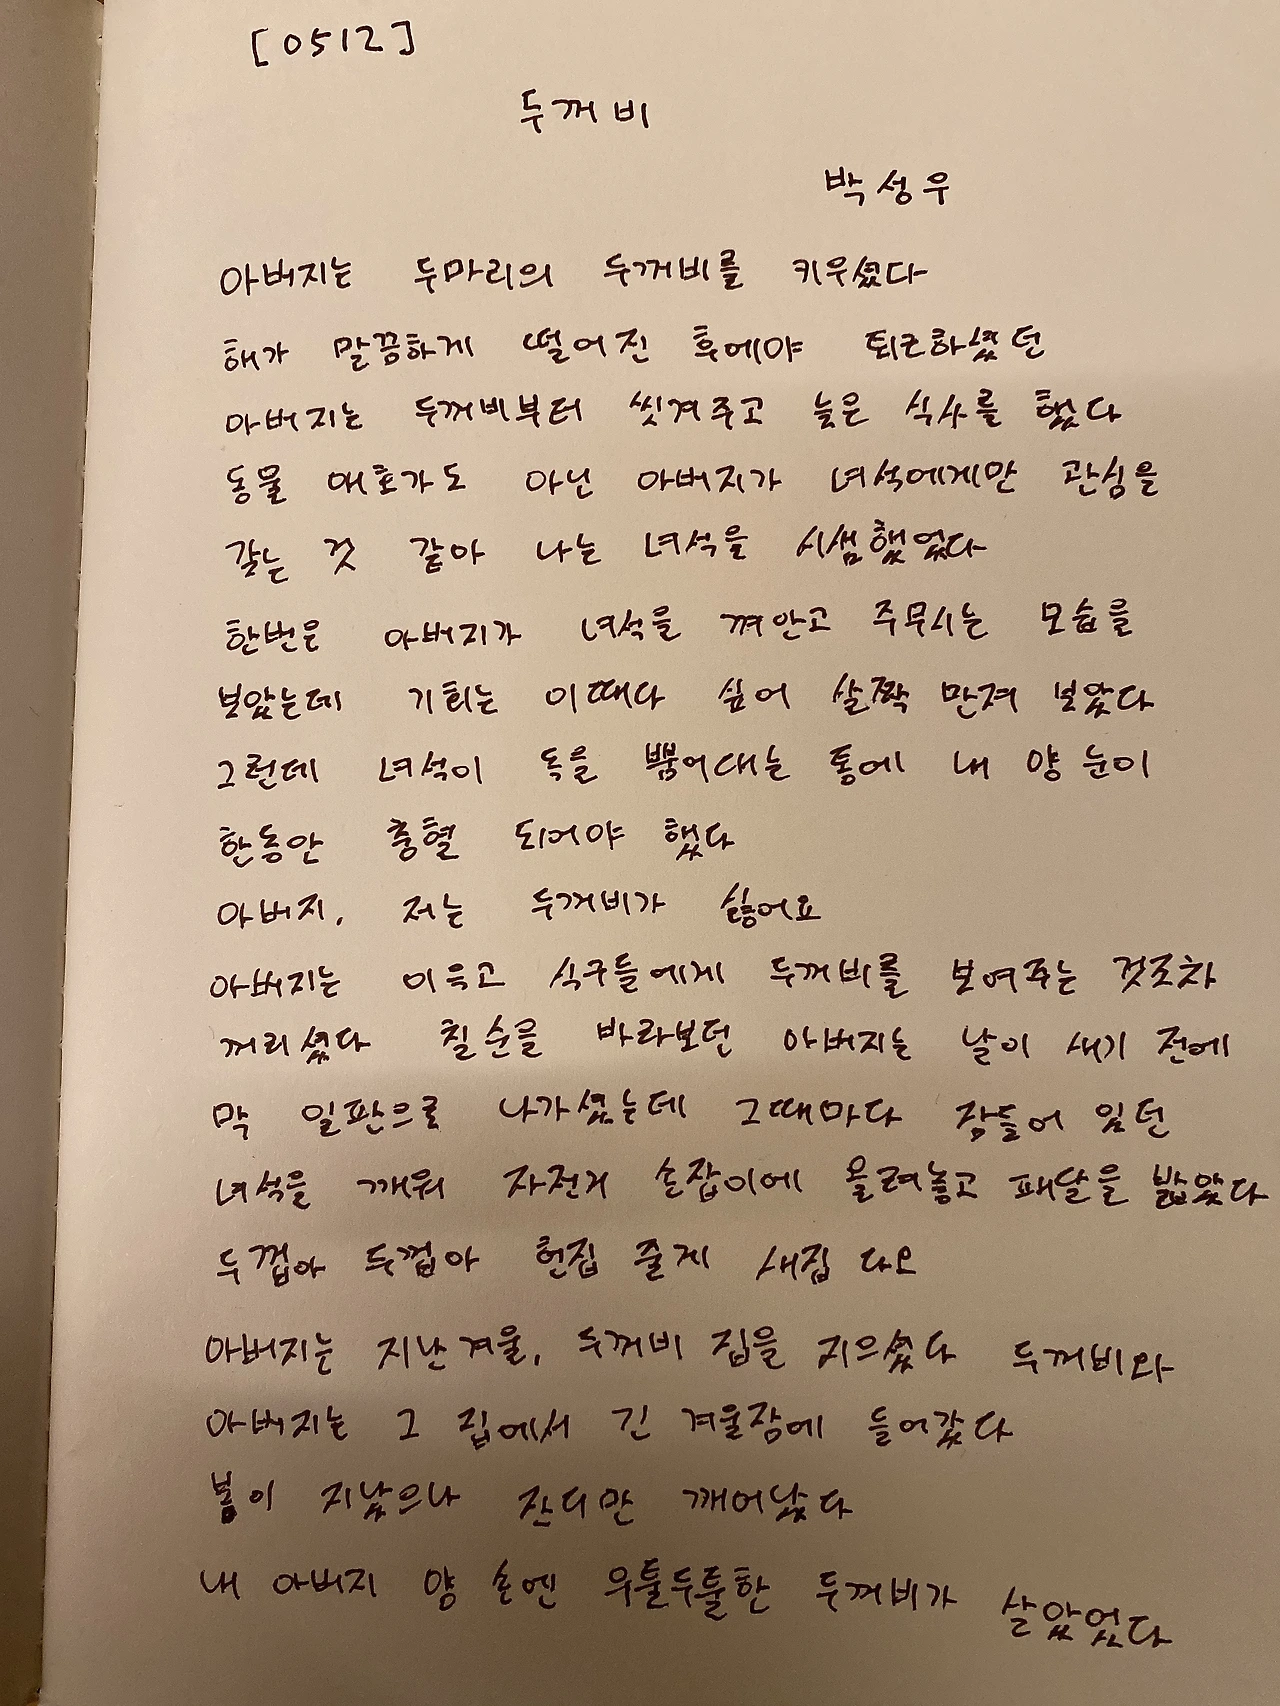 [0512]
두꺼비
박성우
아버지는 두마리의 두꺼비를 키우셨다
해가 말끔하게 떨어진 후에야 퇴근하셨던
아버지는 두꺼비부터 씻겨주고 늦은 식사를 했다
동물 애호가도 아닌 아버지가 녀석에게만 관심을
갖는 것 같아 나는 녀석을 시샘했었다
한번은 아버지가 녀석을 껴안고 주무시는 모습을
보았는데 기회는 이때다 싶어 살짝 만져 보았다
그런데 녀석이 독을 뿜어대는 통에 내 양 눈이
한동안 충혈 되어야 했다
아버지, 저는 두꺼비가 싫어요
아버지는 이윽고 식구들에게 두꺼비를 보여주는 것조차
꺼리셨다 칠순을 바라보던 아버지는 날이 새기 전에
막 일판으로 나가셨는데 그때마다 잠들어 있던
녀석을 깨워 자전거 손잡이에 올려놓고 패달을 밟았다
두껍아 두껍아 헌집 줄게 새집 다오
아버지는 지난 겨울, 두꺼비 집을 지으셨다 두꺼비와
아버지는 그 집에서 긴 겨울잠에 들어갔다
봄이 지났으나 잔디만 깨어났다
내 아버지 양 손엔 우툴두툴한 두꺼비가 살았었다